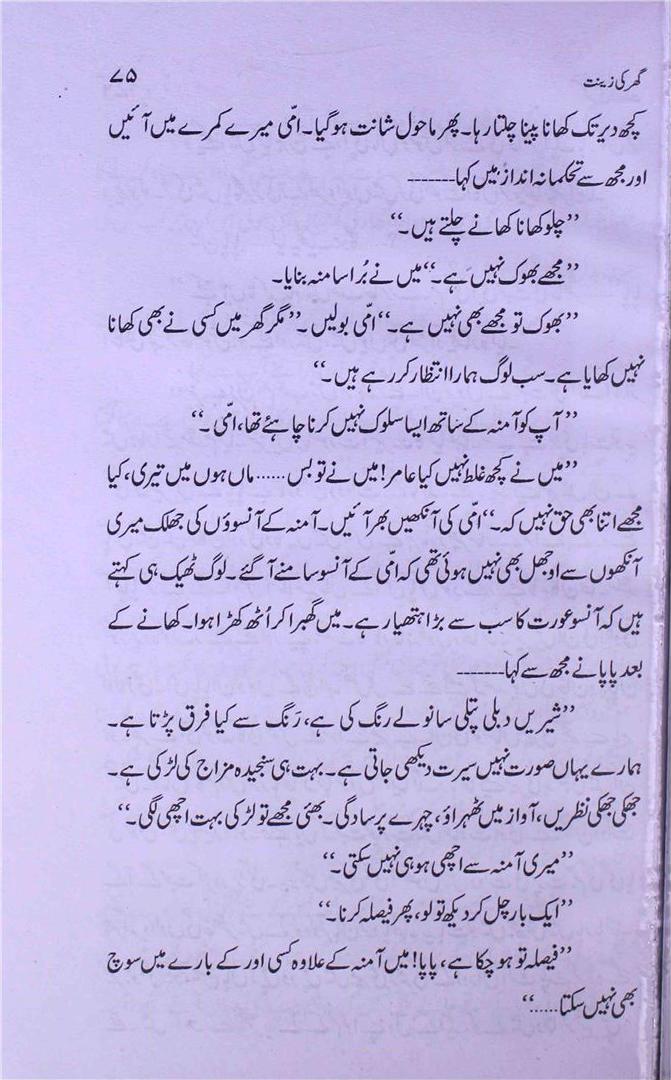 گھر کی زینت ۷۵
کچھ دیر تک کھانا پینا چلتا رہا۔ پھر ماحول شانت ہو گیا۔ امّی میرے کمرے میں آئیں
اور مجھ سے تحکمانہ انداز میں کہا-------
’’چلو کھانا کھانے چلتے ہیں۔‘‘
’’مجھے بھوک نہیں ہے۔‘‘ میں نے بُرا سا منہ بنایا۔
’’بھوک تو مجھے بھی نہیں ہے۔‘‘ امّی بولیں۔ ’’مگر گھر میں کسی نے بھی کھانا
نہیں کھایا ہے۔ سب لوگ ہمارا انتظار کر رہے ہیں۔‘‘
’’آپ کو آمنہ کے ساتھ ایسا سلوک نہیں کرنا چاہئے تھا، امّی۔‘‘
’’میں نے کچھ غلط نہیں کیا عامر! میں نے تو بس...... ماں ہوں میں تیری، کیا
مجھے اتنا بھی حق نہیں کہ۔‘‘ امّی کی آنکھیں بھر آئیں۔ آمنہ کے آنسوؤں کی جھلک میری
آنکھوں سے اوجھل بھی نہیں ہوئی تھی کہ امّی کے آنسو سامنے آ گئے۔ لوگ ٹھیک ہی کہتے
ہیں کہ آنسو عورت کا سب سے بڑا ہتھیار ہے۔ میں گھبرا کر اُٹھ کھڑا ہوا۔ کھانے کے
بعد پاپا نے مجھ سے کہا-------
’’شیریں دبلی پتلی سانولے رنگ کی ہے، رنگ سے کیا فرق پڑتا ہے۔
ہمارے یہاں صورت نہیں سیرت دیکھی جاتی ہے۔ بہت ہی سنجیدہ مزاج کی لڑکی ہے۔
جھکی جھکی نظریں، آواز میں ٹھہراؤ، چہرے پر سادگی۔ بھئی مجھے تو لڑکی بہت اچھی لگی۔‘‘
’’میری آمنہ سے اچھی ہو ہی نہیں سکتی۔‘‘
’’ایک بار چل کر دیکھ تو لو، پھر فیصلہ کرنا۔‘‘
’’فیصلہ تو ہو چکا ہے، پاپا! میں آمنہ کے علاوہ کسی اور کے بارے میں سوچ
بھی نہیں سکتا......‘‘